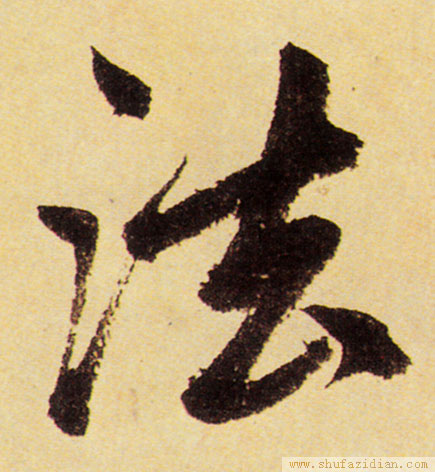 法
www.shufazidian.com